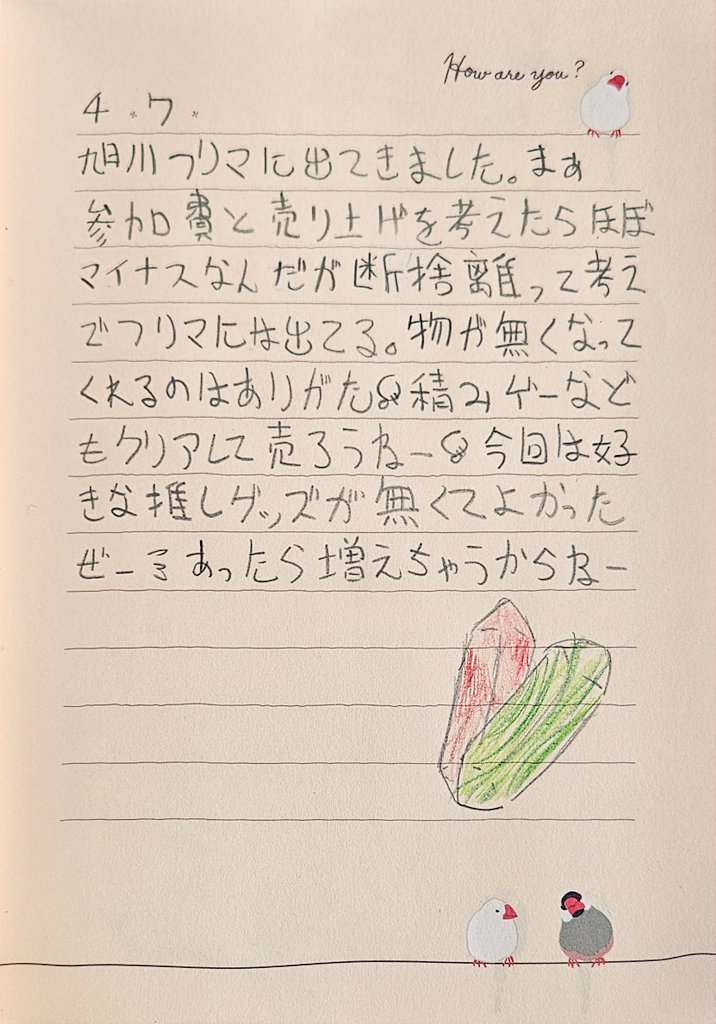 How are you?
4.7.
旭川フリマに出てきました。まぁ
参加費と売り上げを考えたらほぼ
マイナスなんだが断捨離って考え
でフリマには出てる。物が無くなって
くれるのはありがたい積みゲーなど
もクリアして売ろうねー 今回は好
きな推しグッズが無くてよかった
ぜー あったら増えちゃうからねー